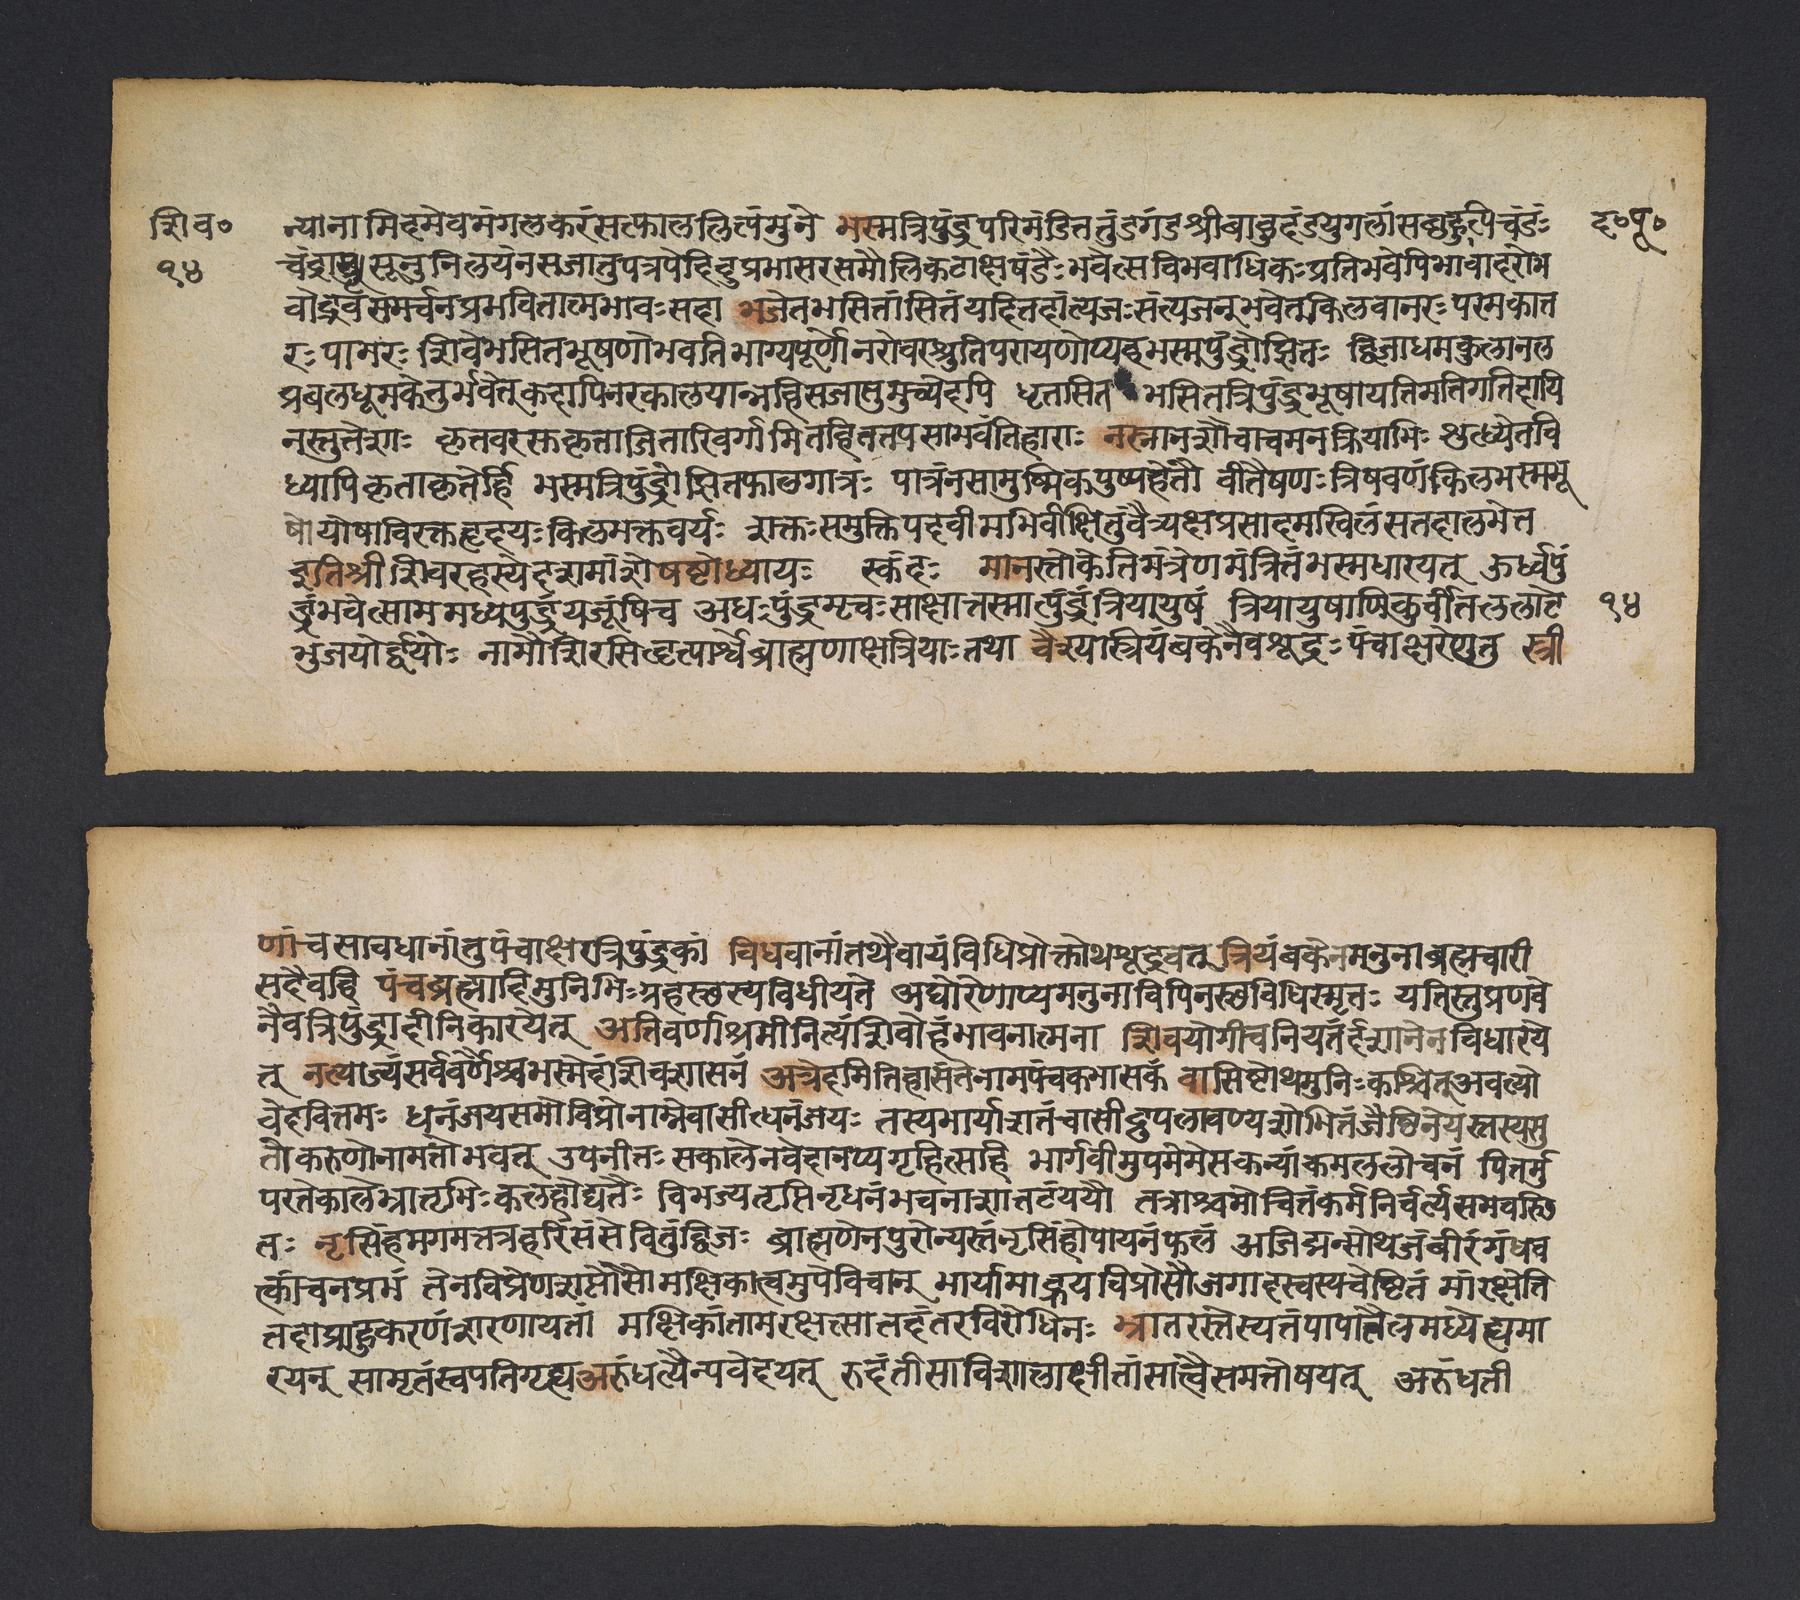 शिव० न्यानामिदमेवमंगलकरंसत्फाललिप्तंमुने भस्मत्रिपुंड्रपरिमंडिततुंडगंडश्रीबाहुदंडयुगलां द०पू०
१४ निलयंनसजातुपत्रपेदिंदुप्रभासरसमौलिकटाक्षषंडैः भवेत्सविभवाधिकःप्रतिभवेपिभावाद्दरोभ
वोद्भवसमर्चनप्रभवितात्मभावःसदा भजेतभसितांसितंयदितदांत्यजःसंत्यजन्भवेत्किलवानरःपरमकात
रःपामरः शिवेभसितभूषणोभवतिभाग्यपूर्णोनरोवरश्रुतिपरायणोप्यहभस्मपुंड्रोझितः द्विजाधमकुलानल
प्रबलधूमकेतुर्भवेत्कदापिनरकालयान्नहिसजातुमुच्येदपि धृतसित भसितत्रिपुंड्रभूषायतिमतिगतिदायि
नस्तुतेशाः कृतवरसुकृताजितारिवर्गामितहितततपसाभवंतिहाराः नस्नानशौचाचमनक्रियाभिः शुध्येतवि
ध्यापिकृताकृतेर्हि भस्मत्रिपुंड्रोझितफालगात्रः पात्रंनसामुष्मिकपुष्पहेतौ वीतैषणःत्रिषवणंकिलभस्मभू
षोयोषाविरक्तहृदयःकिलभक्तवर्यः शक्तःसमुक्तिपदवीमभिवीक्षितुंवैत्र्यक्षप्रसादमखिलंसतदालभेत
इतिश्रीशिवरहस्येदशमांशेषष्टोध्यायः स्कंदः मानस्तोकेतिमंत्रेणमंत्रितंभस्मधारयेत् ऊर्ध्वपुं
ड्रंभवेत्साममध्यपुंड्रंयजूंषिच अधःपुंड्रमृचःसाक्षात्तस्मात्पुंड्रंत्रियायुषं त्रियायुषाणिकुर्वीतललाटे १४
भुजयोर्द्वयोः नाभौशिरसिहृत्पार्श्वेब्राह्मणाक्षत्रियाःतथा वैश्यास्त्रियंबकेनैवशूद्रःपंचाक्षरेणतु स्त्री
णांचसावधानांतुपंचाक्षरत्रिपुंड्रकां विधवानांतथैवायंविधिप्रोक्तोथशूद्रवत् त्रियंबकेनमनुनाब्रह्मचारी
सदैवहि पंचब्रह्मादिमुनिभिःग्रहस्छस्यविधीयते अघोरेणाप्यमनुनाविपिनस्छविधिस्मृतः यतिस्तुप्रणवे
नैवत्रिपुंड्रादीनिकारयेत् अतिवर्णाश्रमीनित्यंशिवोहंभावनात्मना शिवयोगीचनियतंईशानेनविधारये
त् नत्याज्यंसर्ववर्णैश्चभस्मेदंशिवशासनं अत्रेदमितिहासंतेनामपंचकभासकं वासिष्टोथमुनिःकश्चित्अवत्यो
वेदवित्तमः धनंजयसमोविप्रोनाम्नेवासीत्धनंजयः तस्यभार्याशतंचासीद्रूपलावण्यशोभितं ज्येष्ठिनेयस्तस्यसु
तोकरुणोनामतोभवत् उपनीतःसकालेनवेदानप्यगृहित्सहि भार्गवीमुपमेमेसकन्यांकमललोचनं पितर्मु
परतेकालेभ्रातृभिःकलहोद्यतैः विभज्यतृप्तितृधनंभवनाशातटंययौ तत्राश्चमोचितंकर्मनिर्वर्त्यसमवस्छि
तः नृसिंहमगमत्तत्रहरिंसंसेवितुंद्विजः ब्राह्मणेनपुरोन्यस्तंनृसिंहोपायनंफलं अजिघ्रन्सोथजंबीरंगंधव
त्कांचनप्रभं तेनविप्रेणशप्तोसौमक्षिकात्वमुपेयिवान् भार्यामाहूयविप्रोसौजगादस्वस्यचेष्टितं मांरक्षेति
तदाप्राहकरुणंशरणायतां मक्षिकांतामरक्षत्सातदंतरविरोधिनः भ्रातरस्तस्यतंपापातैलमध्येह्यमा
रयन् सामृतंस्वपतिंगृह्यअरुंधत्यैन्यवेदयत् रुदंतीसाविशालाक्षीतांसात्वैसमतोषयत् अरुंधती